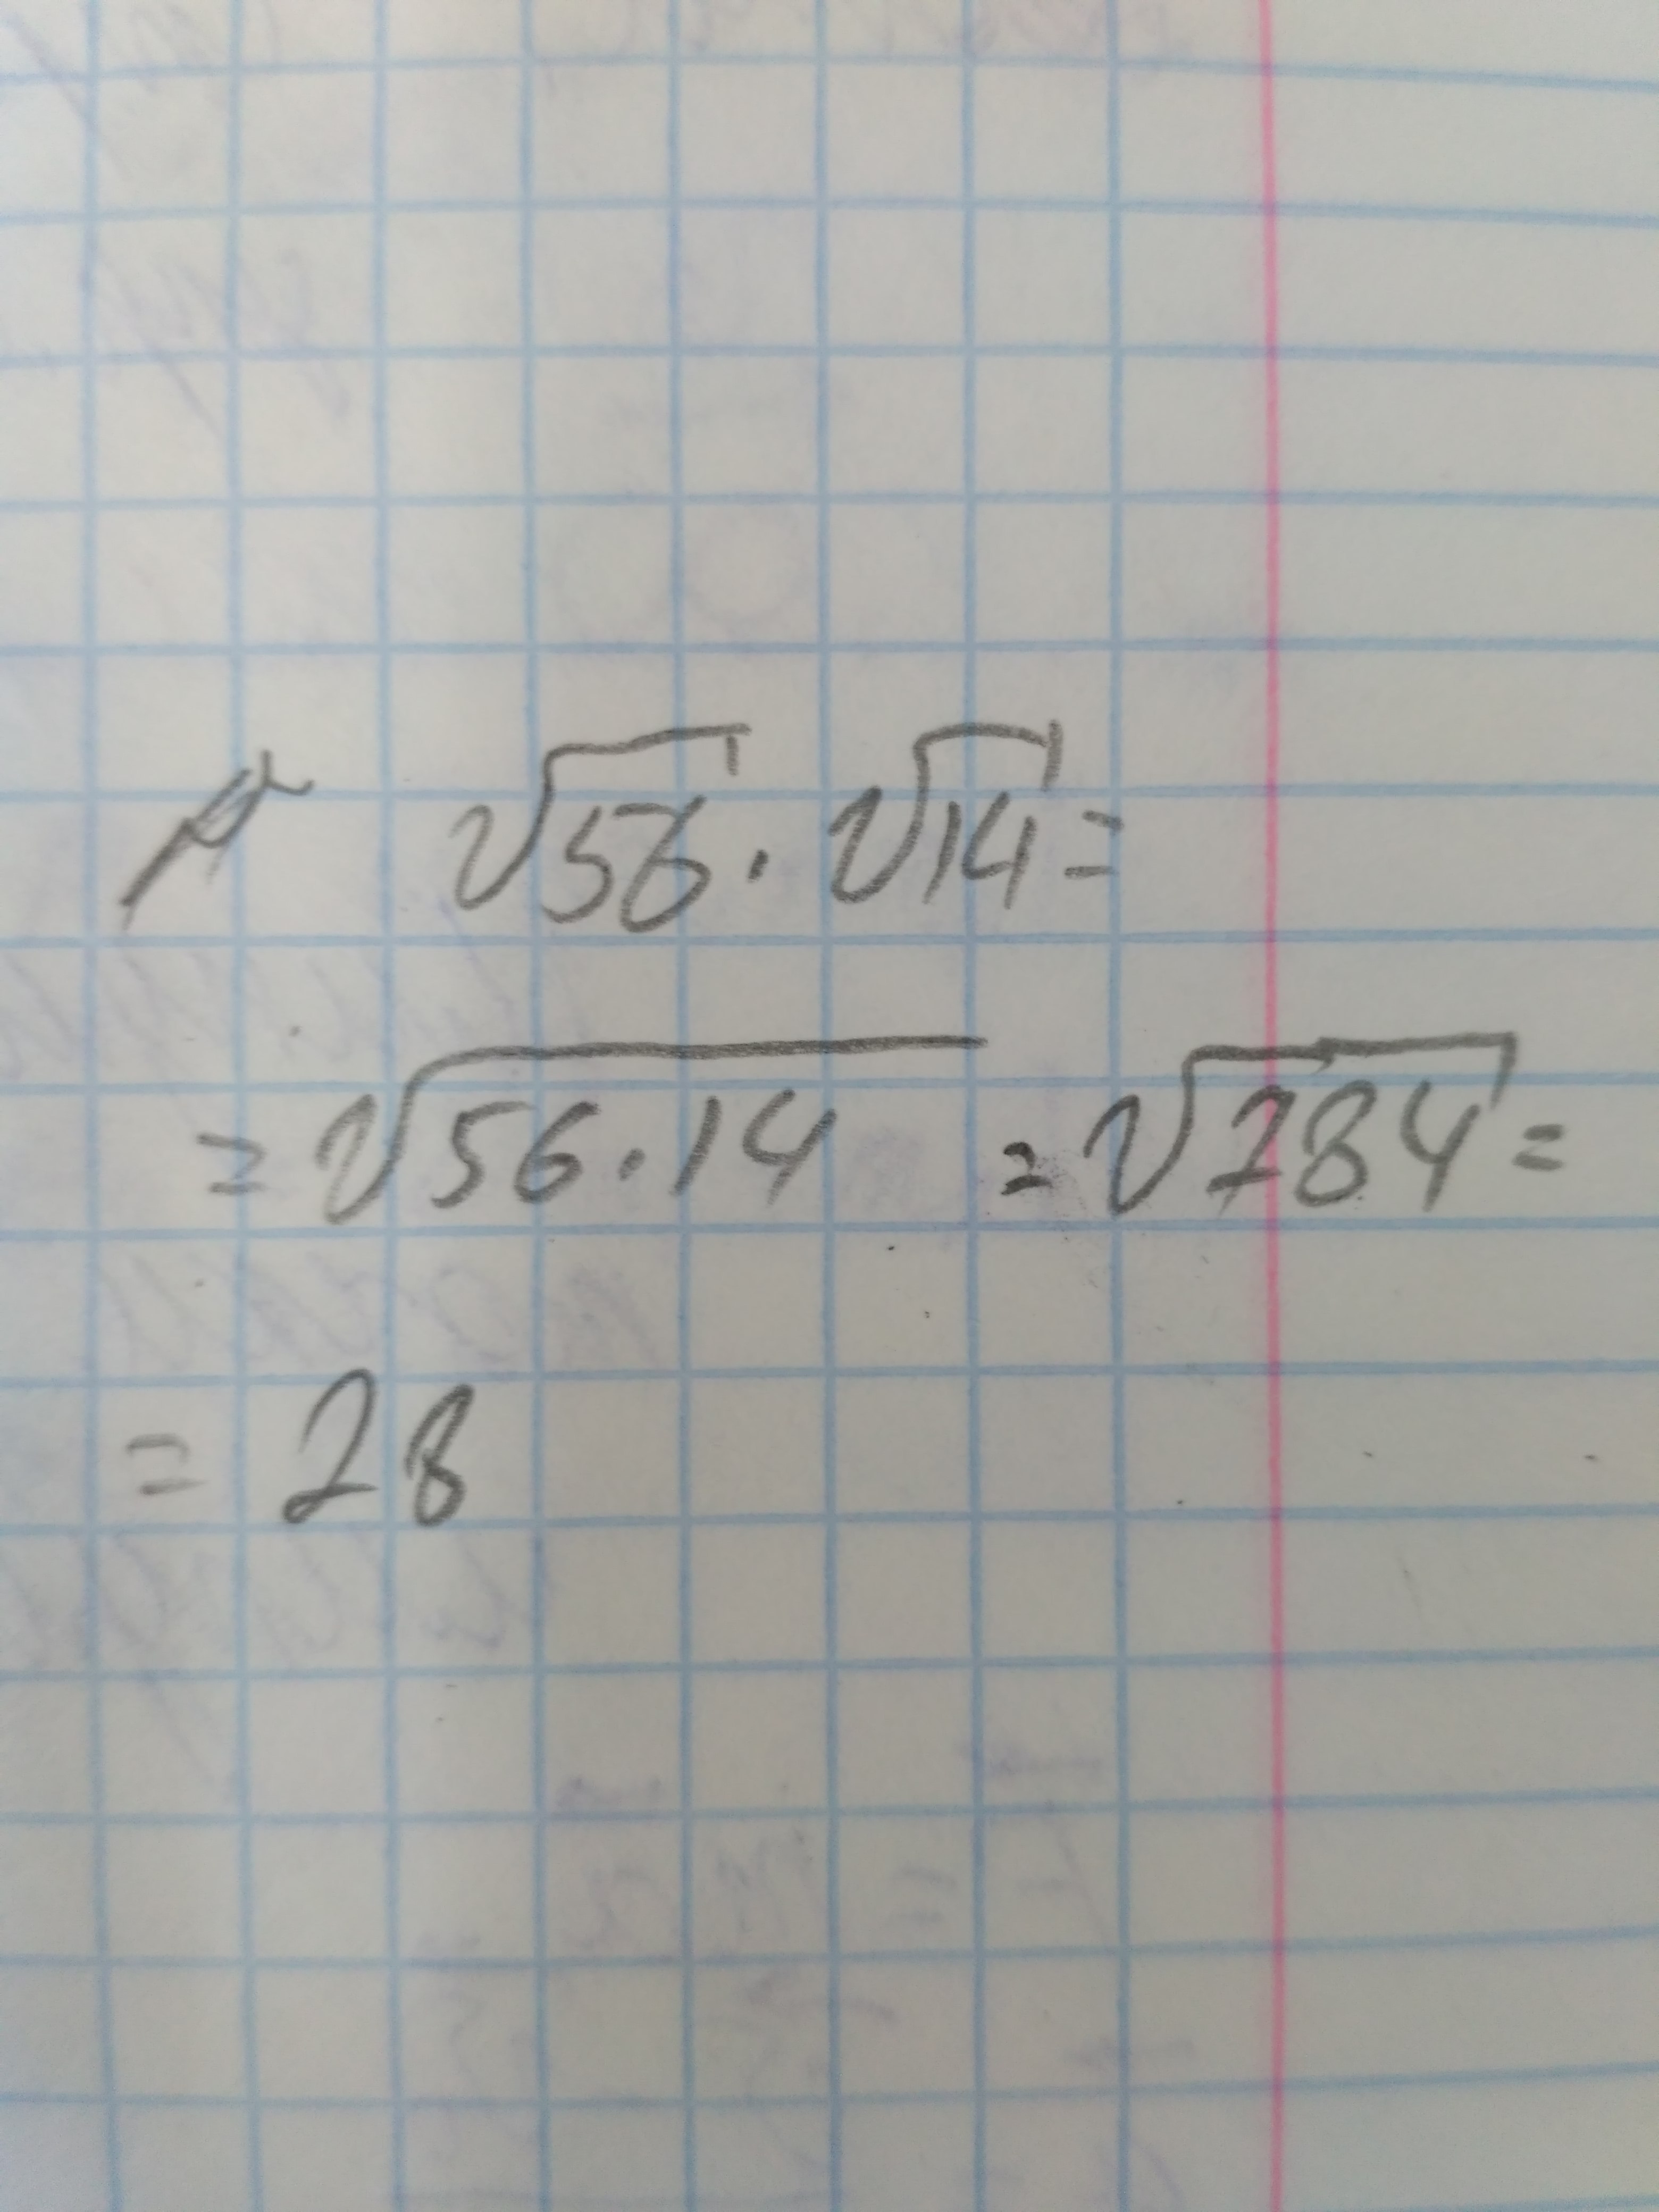 √56 · √14 =
= √56 · 14 = √784 =
= 28